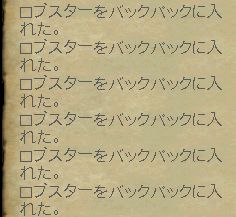 ロブスターをバックパックに入
れた。
ロブスターをバックパックに入
れた。
ロブスターをバックパックに入
れた。
ロブスターをバックパックに入
れた。
ロブスターをバックパックに入
れた。
ロブスターをバックパックに入
れた。